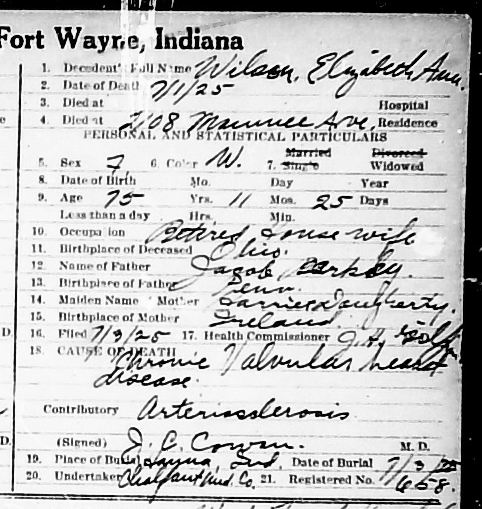 Fort Wayne, Indiana
1. Decedent's Full Name Wilson, Elizabeth Ann.
2. Date of Death 7/1/25
3. Died at Hospital
4. Died at 2108 Maumee Ave. Residence
PERSONAL AND STATISTICAL PARTICULARS
5. Sex F 6. Color W. 7. Married Single Divorced Widowed
8. Date of Birth Mo. Day Year
9. Age 75 Yrs. 11 Mos. 25 Days
Less than a day Hrs. Min.
10. Occupation Retired House wife
11. Birthplace of Deceased Ohio.
12. Name of Father Jacob
13. Birthplace of Father Penn.
14. Maiden Name Mother Daugherty.
15. Birthplace of Mother Ireland.
16. Filed 7/3/25 17. Health Commissioner J. H.
18. CAUSE OF DEATH
Chronic Valvular heart
disease.
Contributory Arteriossclerosis
(Signed) J. C. Cowan. M. D.
19. Place of Burial Ind, Date of Burial 7/3/25
20. Undertaker Co. 21. Registered No. 658.